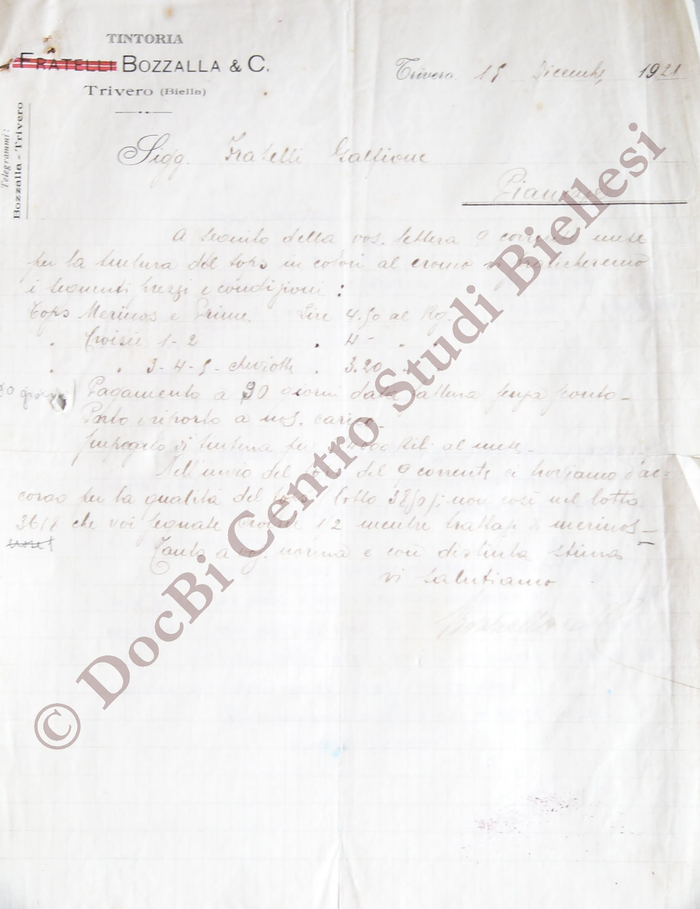 TINTORIA
FRATELLI BOZZALLA & C.
Trivero (Biella)
Telegrammi:
Bozzalla - Trivero
Trivero 15 Dicembre 1921
Sigg. Fratelli Galfione
A seguito della vos. lettera 9 corrente mese
per la tintura del tops in colori al cromo
i seguenti prezzi e condizioni:
Tops Merinos e Prime Lire 4.50 al Kg.
" Croisé 1-2 " 4- "
" " 3-4-5 cheviotts " 3.20 "
Pagamento a 90 giorni data fattura senza sconto-
Porto e riporto a nos. carico
di tintura per al mese-
Nell'invio del del 9 corrente ci troviamo d'ac-
cordo per la qualità del lotto non così nel lotto
che voi segnate 12 mentre trattasi di merinos-
Tanto a vs. norma e con distinta stima
vi salutiamo
© DocBi Centro Studi Biellesi